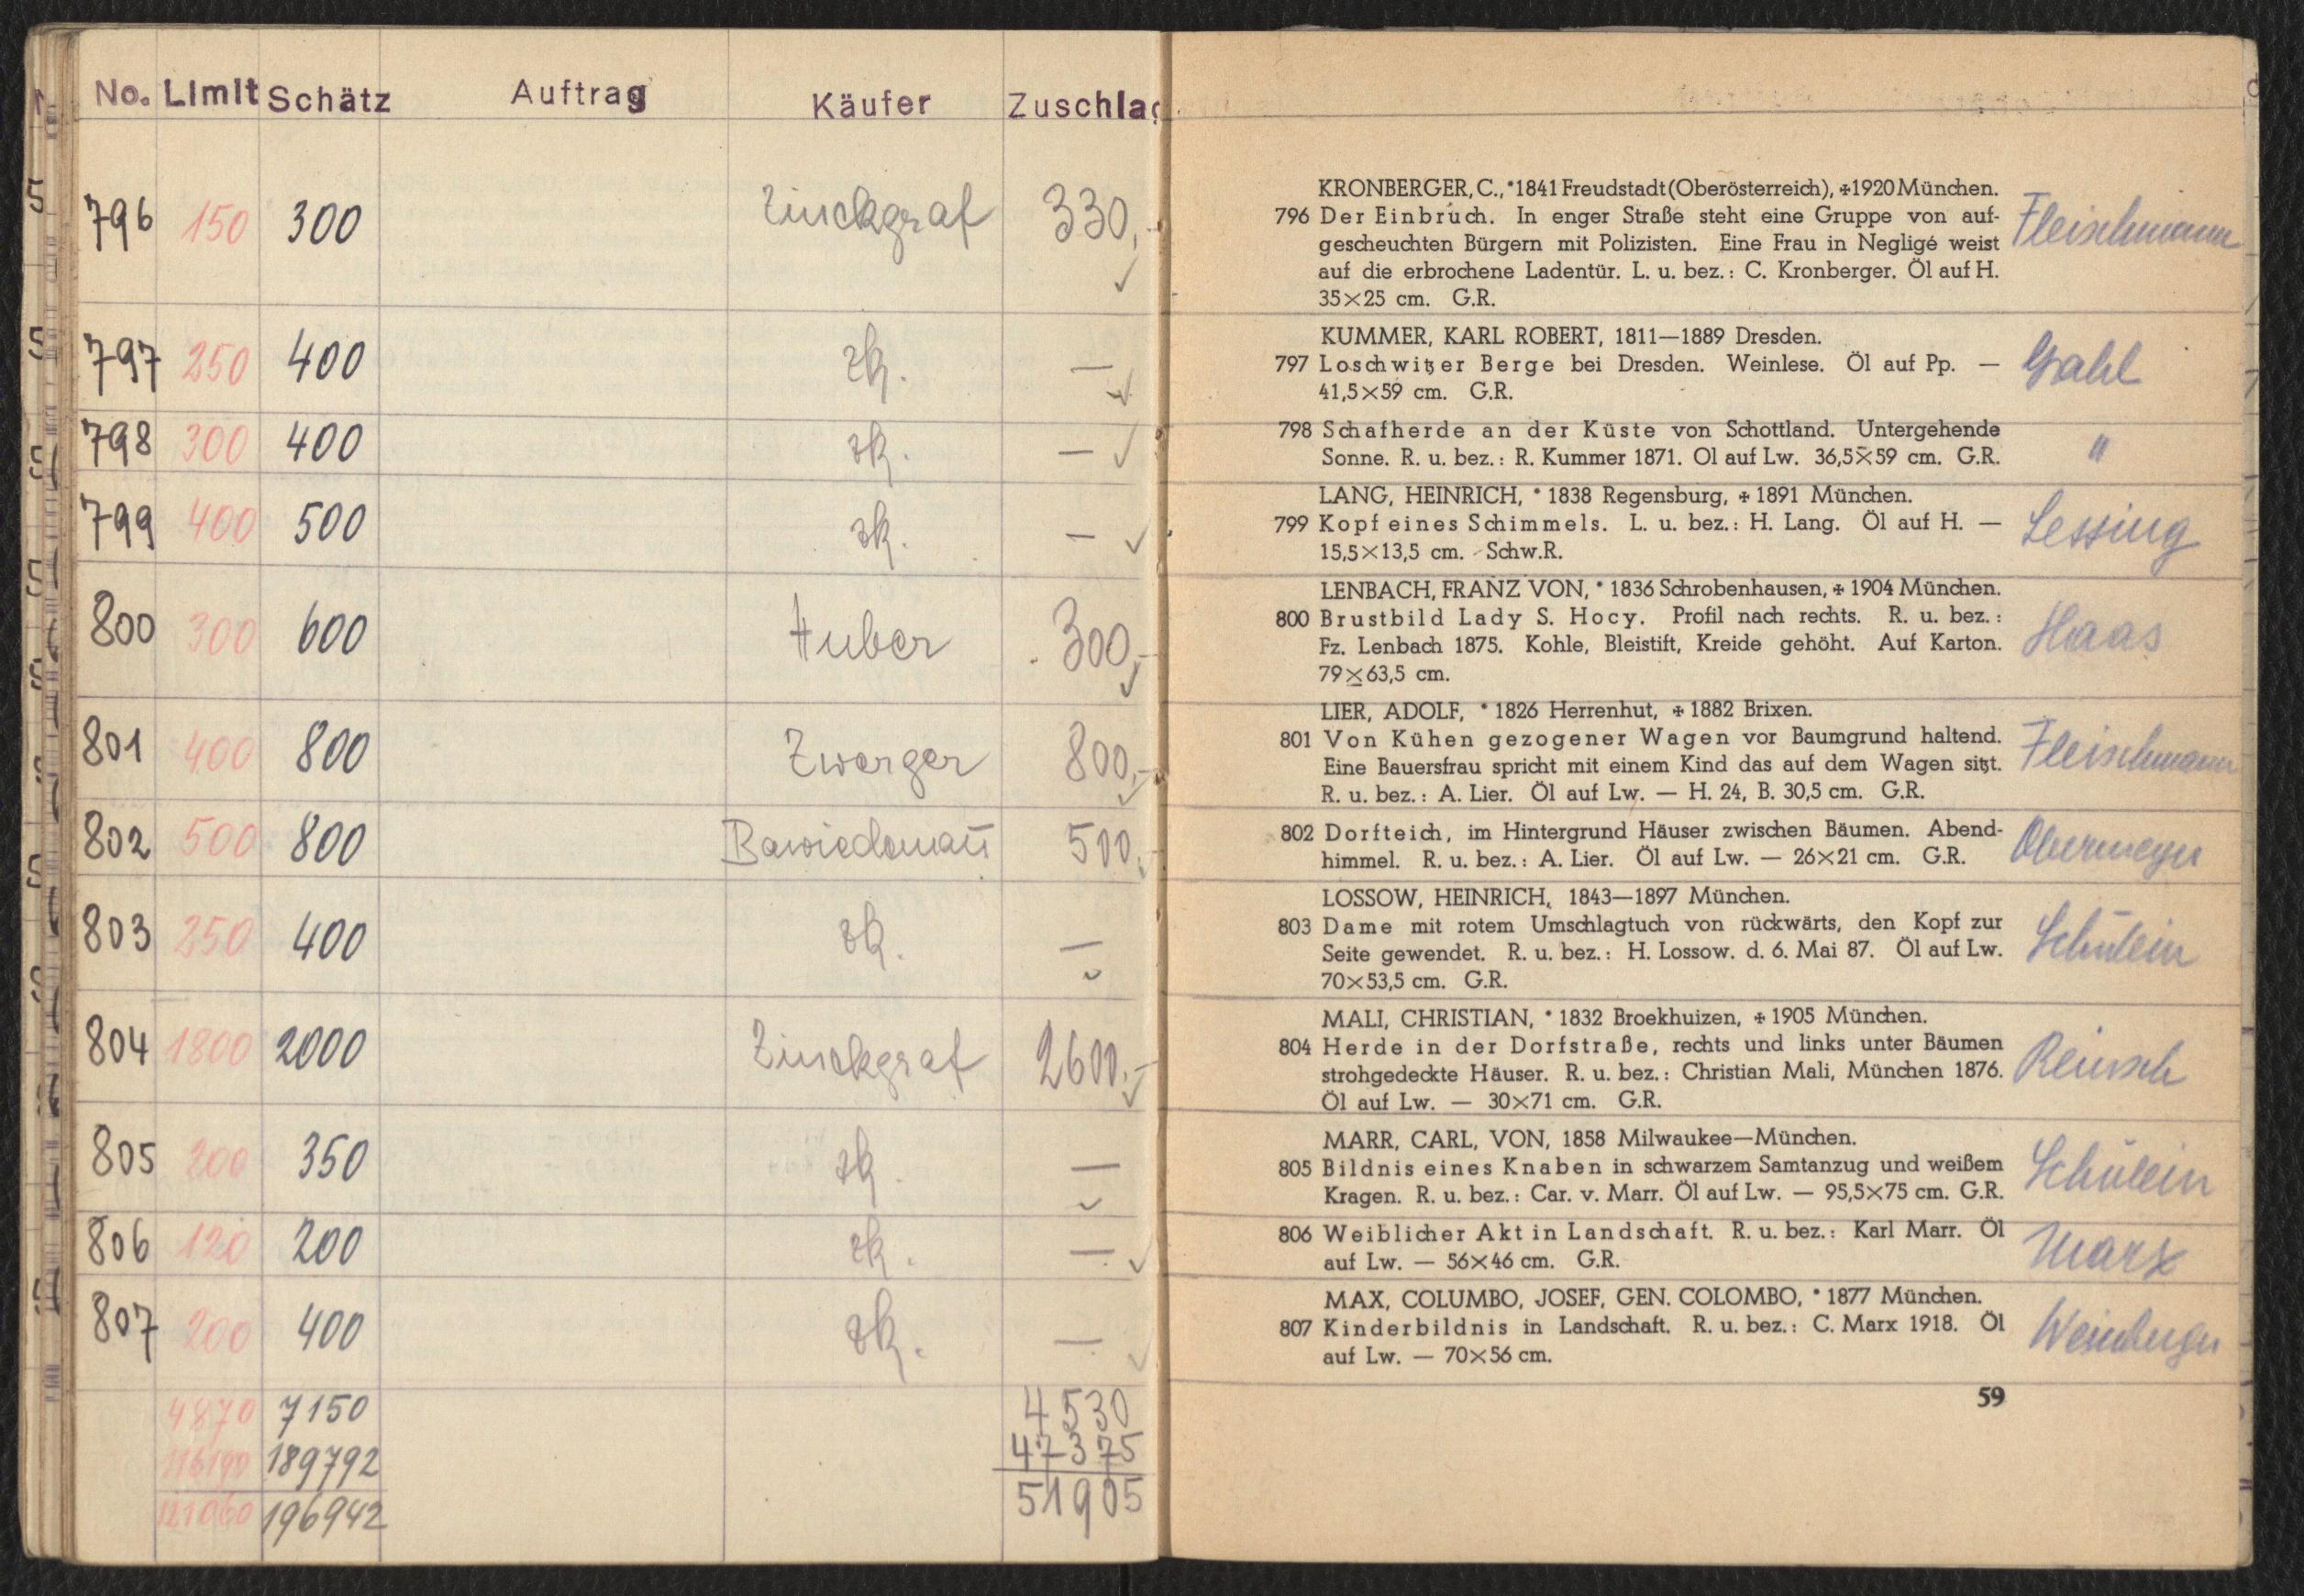 No. Limit Schätz Auftrag Käufer Zuschlag
796 150 300 Zinckgraf 330,-
797 250 400 zk. —
798 300 400 zk. —
799 400 500 zk. —
800 300 600 Huber 300,-
801 400 800 Zwerger 800,-
802 500 800 500,-
803 250 400 zk. —
804 1800 2000 Zinckgraf 2600.-
805 200 350 zk. —
806 120 200 zk. —
807 200 400 zk. —
4870 7150 4530
116190 189792 47375
121060 196942 51905
KRONBERGER, C., *1841 Freudstadt (Oberösterreich), ✠1920 München.
796 Der Einbruch. In enger Straße steht eine Gruppe von auf- Fleischmann
gescheuchten Bürgern mit Polizisten. Eine Frau in Negligé weist
auf die erbrochene Ladentür. L. u. bez.: C. Kronberger. Öl auf H.
35×25 cm. G.R.
KUMMER, KARL ROBERT, 1811—1889 Dresden.
797 Loschwitzer Berge bei Dresden. Weinlese. Öl auf Pp. —
41,5×59 cm. G.R.
798 Schafherde an der Küste von Schottland. Untergehende "
Sonne. R. u. bez.: R. Kummer 1871. Öl auf Lw. 36,5×59 cm. G.R.
LANG, HEINRICH, * 1838 Regensburg, ✠ 1891 München.
799 Kopf eines Schimmels. L. u. bez.: H. Lang. Öl auf H. — Lessing
15,5×13,5 cm. Schw.R.
LENBACH, FRANZ VON, * 1836 Schrobenhausen, ✠ 1904 München.
800 Brustbild Lady S. Hocy. Profil nach rechts. R. u. bez.: Haas
Fz. Lenbach 1875. Kohle, Bleistift, Kreide gehöht. Auf Karton.
79×63,5 cm.
LIER, ADOLF, * 1826 Herrenhut, ✠ 1882 Brixen.
801 Von Kühen gezogener Wagen vor Baumgrund haltend. Fleischmann
Eine Bauersfrau spricht mit einem Kind das auf dem Wagen sitzt.
R. u. bez.: A. Lier. Öl auf Lw. — H. 24, B. 30,5 cm. G.R.
802 Dorfteich, im Hintergrund Häuser zwischen Bäumen. Abend- Obermeyer
himmel. R. u. bez.: A. Lier. Öl auf Lw. — 26×21 cm. G.R.
LOSSOW, HEINRICH, 1843—1897 München.
803 Dame mit rotem Umschlagtuch von rückwärts, den Kopf zur Schülein
Seite gewendet. R. u. bez.: H. Lossow. d. 6. Mai 87. Öl auf Lw.
70×53,5 cm. G.R.
MALI, CHRISTIAN, * 1832 Broekhuizen, ✠ 1905 München.
804 Herde in der Dorfstraße, rechts und links unter Bäumen
strohgedeckte Häuser. R. u. bez.: Christian Mali, München 1876.
Öl auf Lw. — 30×71 cm. G.R.
MARR, CARL, VON, 1858 Milwaukee—München.
805 Bildnis eines Knaben in schwarzem Samtanzug und weißem Schülein
Kragen. R. u. bez.: Car. v. Marr. Öl auf Lw. — 95,5×75 cm. G.R.
806 Weiblicher Akt in Landschaft. R. u. bez.: Karl Marr. Öl Marx
auf Lw. — 56×46 cm. G.R.
MAX, COLUMBO, JOSEF, GEN. COLOMBO, * 1877 München.
807 Kinderbildnis in Landschaft. R. u. bez.: C. Marx 1918. Öl Weinberger
auf Lw. — 70×56 cm.
59